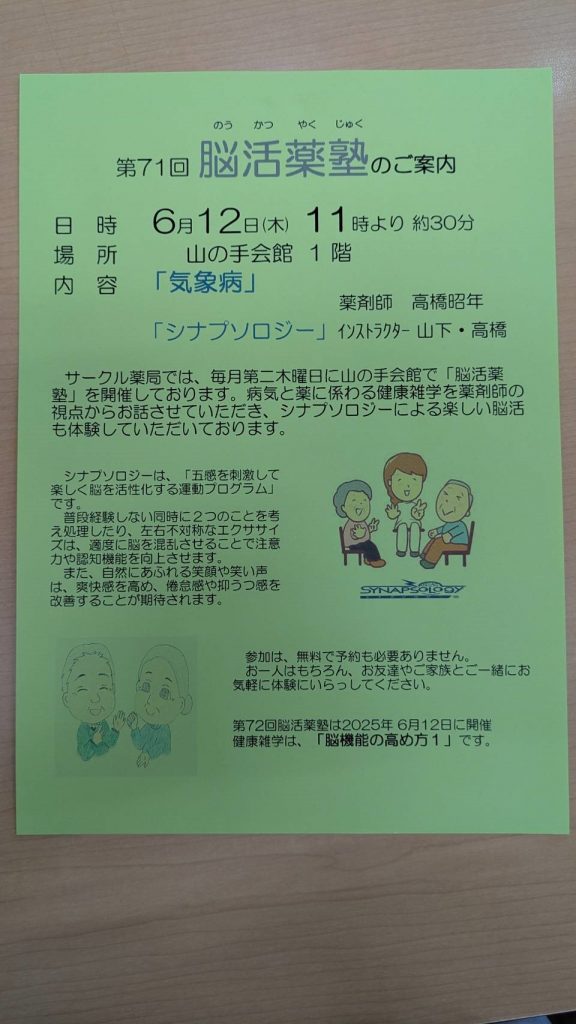 のう かつ やく じゅく
第71回 脳活薬塾のご案内
日 時 6月12日(木) 11時より 約30分
場 所 山の手会館 1階
内 容 「気象病」
薬剤師 高橋昭年
「シナプソロジー」 ｲﾝｽﾄﾗｸﾀｰ 山下・高橋
サークル薬局では、毎月第二木曜日に山の手会館で「脳活薬
塾」を開催しております。病気と薬に係わる健康雑学を薬剤師の
視点からお話させていただき、シナプソロジーによる楽しい脳活
も体験していただいております。
シナプソロジーは、「五感を刺激して
楽しく脳を活性化する運動プログラム」
です。
普段経験しない同時に２つのことを考
え処理したり、左右不対称なエクササイ
ズは、適度に脳を混乱させることで注意
力や認知機能を向上させます。
また、自然にあふれる笑顔や笑い声
は、爽快感を高め、倦怠感や抑うつ感を
改善することが期待されます。
SYNAPSOLOGY
参加は、無料で予約も必要ありません。
お一人はもちろん、お友達やご家族とご一緒にお
気軽に体験にいらっしてください。
第72回脳活薬塾は2025年 6月12日に開催
健康雑学は、「脳機能の高め方１」です。